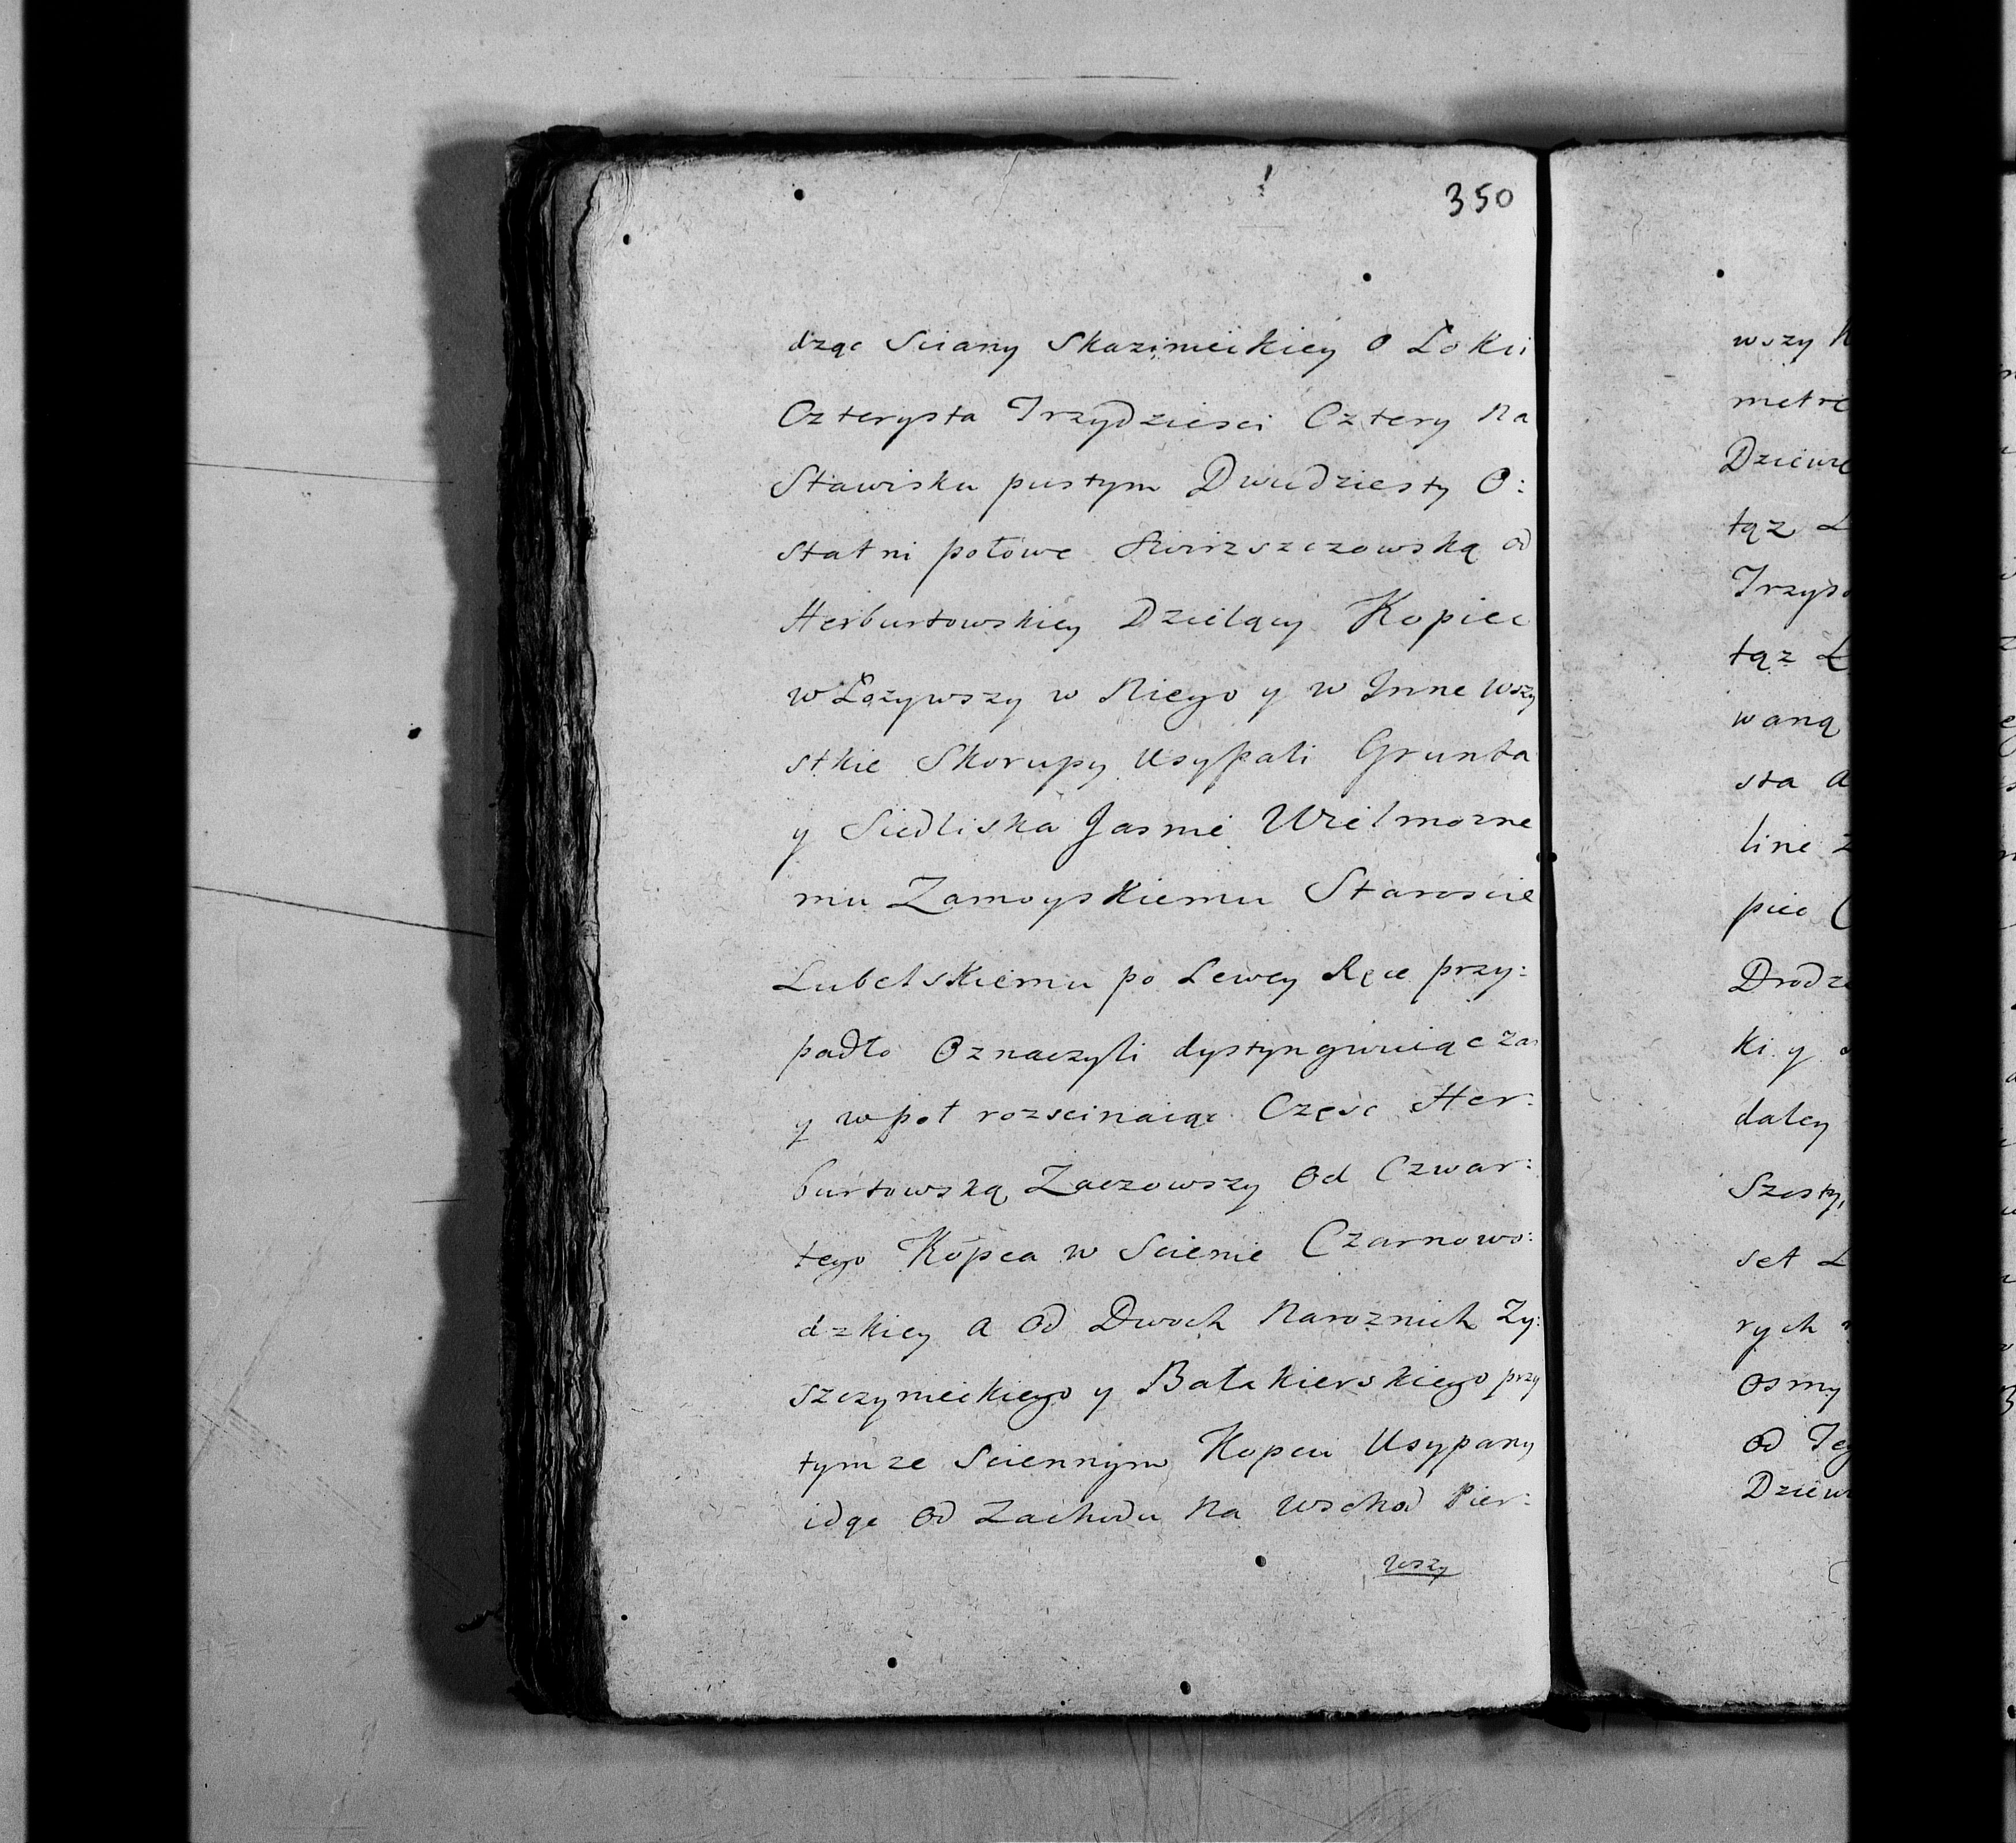 350
dząc Sciany Skazimeickiey o Łokci
Czterysta Trzydziesci Cztery na
Stawisku pustym Dwudziesty O:
statni połowe Swirzszczowską od
Herburtowskiey Dzielący Kopiec
w Łożywszy w Niego y w Inne wszy
stkie Skorupy Usypali Grunta
y Siedliska Jasnie Wielmozne
mu Zamoyskiemu Staroscie
Lubelskiemu po Lewey Ręce przy:
padło Oznaczyli dystyngwuiąc zas
y wpoł rozscinaiąc Częsc Her:
burtowską Zaczowszy od Czwar:
tego Kopca w Scienie Czarnowo:
dzkiey a od Dwoch Naroznich Zy:
szczynieckiego y Bałakierskiego przy
tymze Sciennym Kopcu Usypany
idąc od Zachodu na Wschod Pier:
wszy
wszy
metr
Dziewe
tąz
Trzyd
tąz
waną
sta
line
piec
Drodze
ki y
daley
Szosty,
set
rych
osmy
od Teg
Dziew